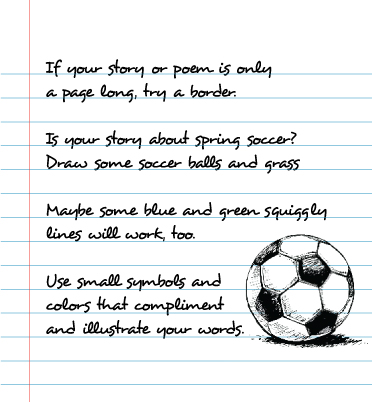 If your story or poem is only
a page long, try a border.
Is your story about spring soccer?
Draw some soccer balls and grass
Maybe some blue and green squiggly
lines will work, too.
Use small symbols and
colors that compliment
and illustrate your words.